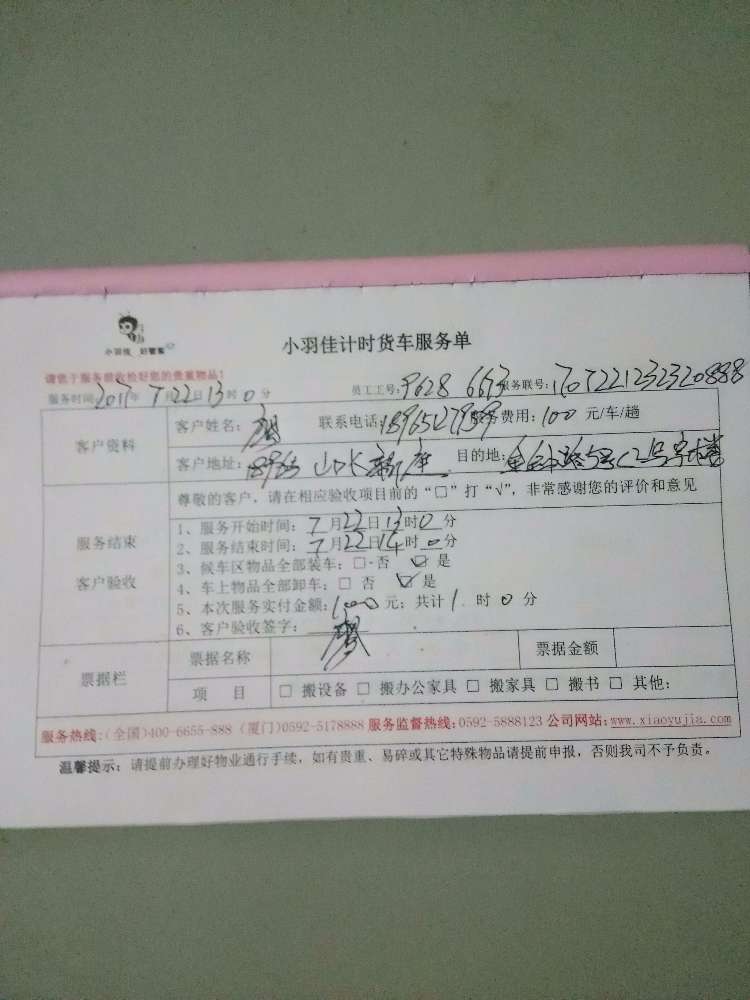 小羽佳 好管家
小羽佳计时货车服务单
请您于服务前收检好您的贵重物品!
服务时间:2017年7月22日13时0分 员工工号:9628 6673 服务联号:1707221232320888
客户资料
客户姓名: 联系电话: 服务费用:100元/车/趟
客户地址: 目的地:
尊敬的客户,请在相应验收项目前的“□”打“√”,非常感谢您的评价和意见
服务结束
客户验收
1、服务开始时间:7月22日13时0分
2、服务结束时间:7月22日14时0分
3、候车区物品全部装车:□-否 ☑是
4、车上物品全部卸车:□ 否 ☑是
5、本次服务实付金额:100元;共计1时0分
6、客户验收签字:
票据栏
票据名称 票据金额
项 目 □ 搬设备 □ 搬办公家具 □ 搬家具 □ 搬书 □ 其他:
服务热线:(全国)400-6655-888 (厦门)0592-5178888 服务监督热线:0592-5888123 公司网站:www.xiaoyujia.com
温馨提示:请提前办理好物业通行手续,如有贵重、易碎或其它特殊物品请提前申报,否则我司不予负责。